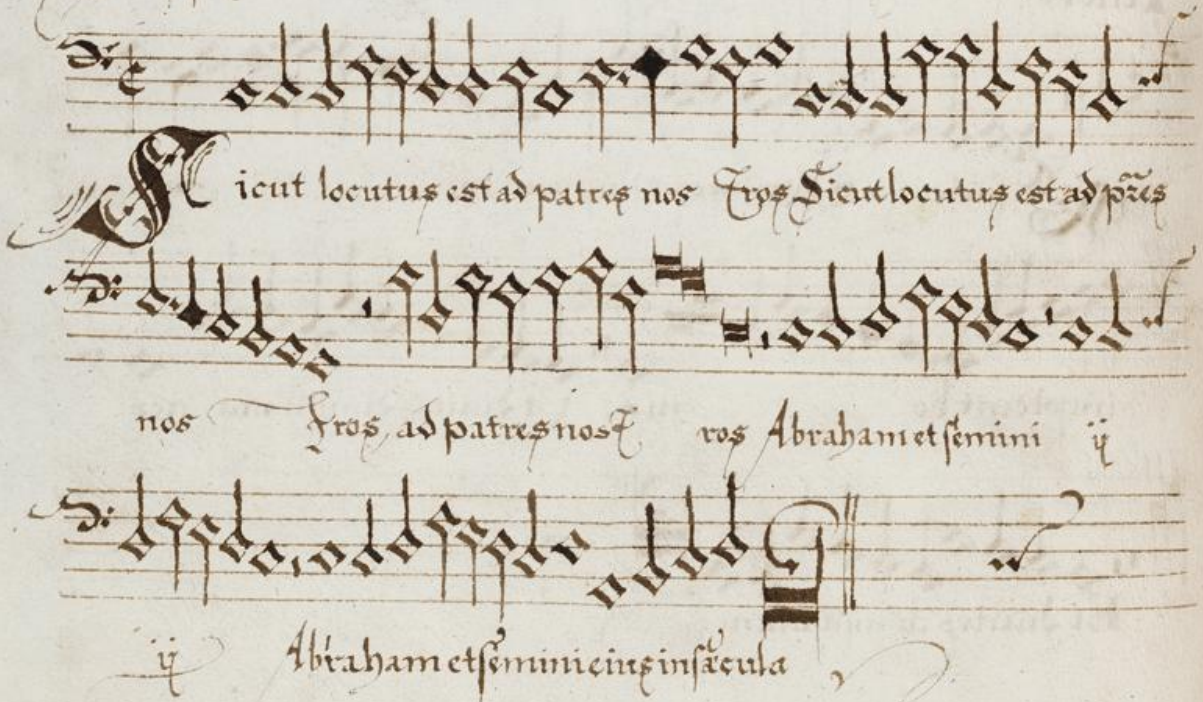 Sicut locutus est ad patres nos tros Sicut locutus est ad p̃res
nos tros, ad patres nost ros Abraham et semini ij
ij Abraham et semini eius in sæcula